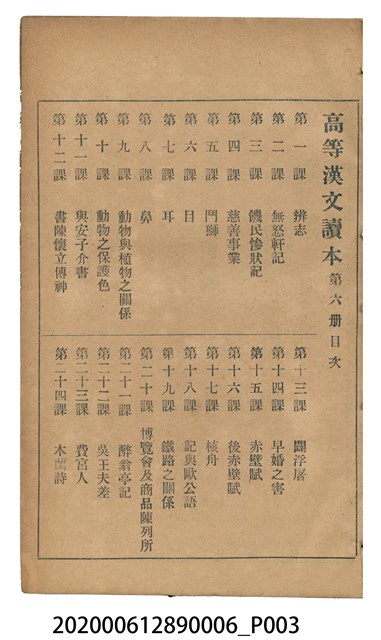 高等漢文讀本 第六册目次
第一課 辨志
第二課 無怒軒記
第三課 饑民慘狀記
第四課 慈善事業
第五課 鬥獅
第六課 目
第七課 耳
第八課 鼻
第九課 動物與植物之關係
第十課 動物之保護色
第十一課 與安子介書
第十二課 書陳懷立傳神
第十三課 闢浮屠
第十四課 早婚之害
第十五課 赤壁賦
第十六課 後赤壁賦
第十七課 核舟
第十八課 記與歐公語
第十九課 鐵路之關係
第二十課 博覽會及商品陳列所
第二十一課 醉翁亭記
第二十二課 吳王夫差
第二十三課 費宮人
第二十四課 木蘭詩
202000612890006_P003